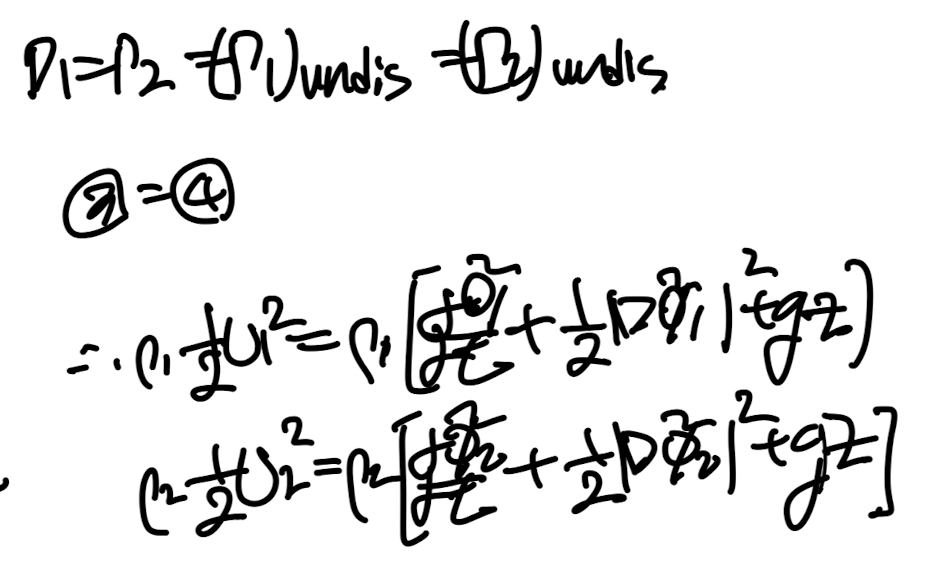 P₁=P₂ =(P₁)undis =(P₂)undis
③=④
∴ ρ₁ ½U₁²=ρ₁[∂Φ̃₁/∂t + ½|∇Φ̃₁|²+gz)
ρ₂ ½U₂²=ρ₂[∂Φ̃₂/∂t + ½|∇Φ̃₂|²+gz]